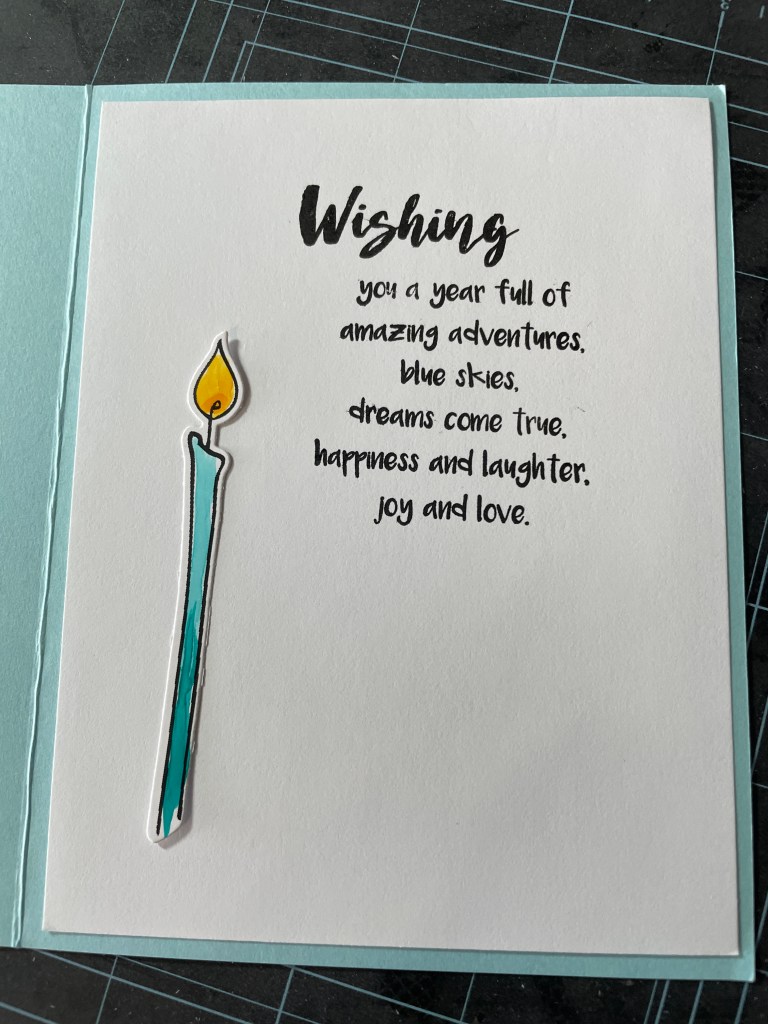 Wishing
you a year full of
amazing adventures,
blue skies,
dreams come true,
happiness and laughter,
joy and love.